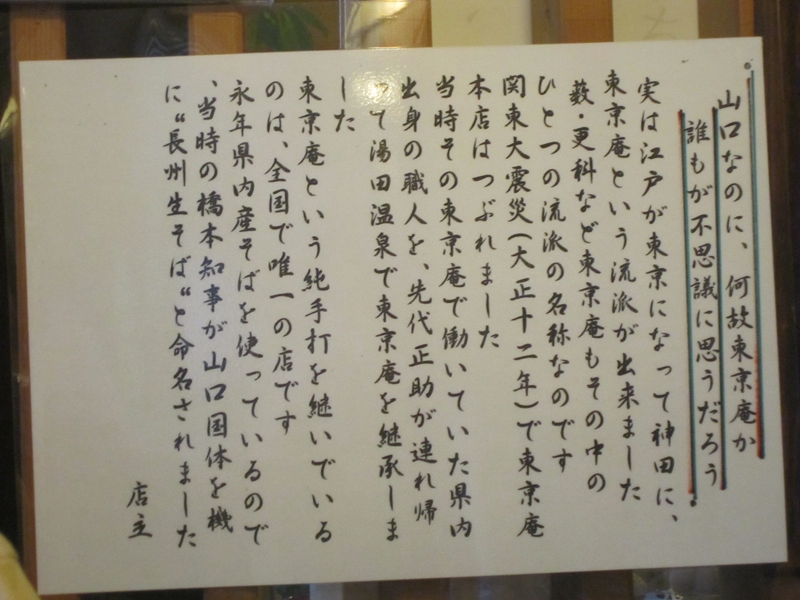 山口なのに、何故東京庵か
誰もが不思議に思うだろう
実は江戸が東京になって神田に、
東京庵という流派が出来ました
薮・更科など東京庵もその中の
ひとつの流派の名称なのです
関東大震災(大正十二年)で東京庵
本店はつぶれました
当時その東京庵で働いていた県内
出身の職人を、先代正助が連れ帰
って湯田温泉で東京庵を継承しま
した
東京庵という純手打を継いでいる
のは、全国で唯一の店です
永年県内産そばを使っているので
、当時の橋本知事が山口国体を機
に〝長州生そば〟と命名されました
店主